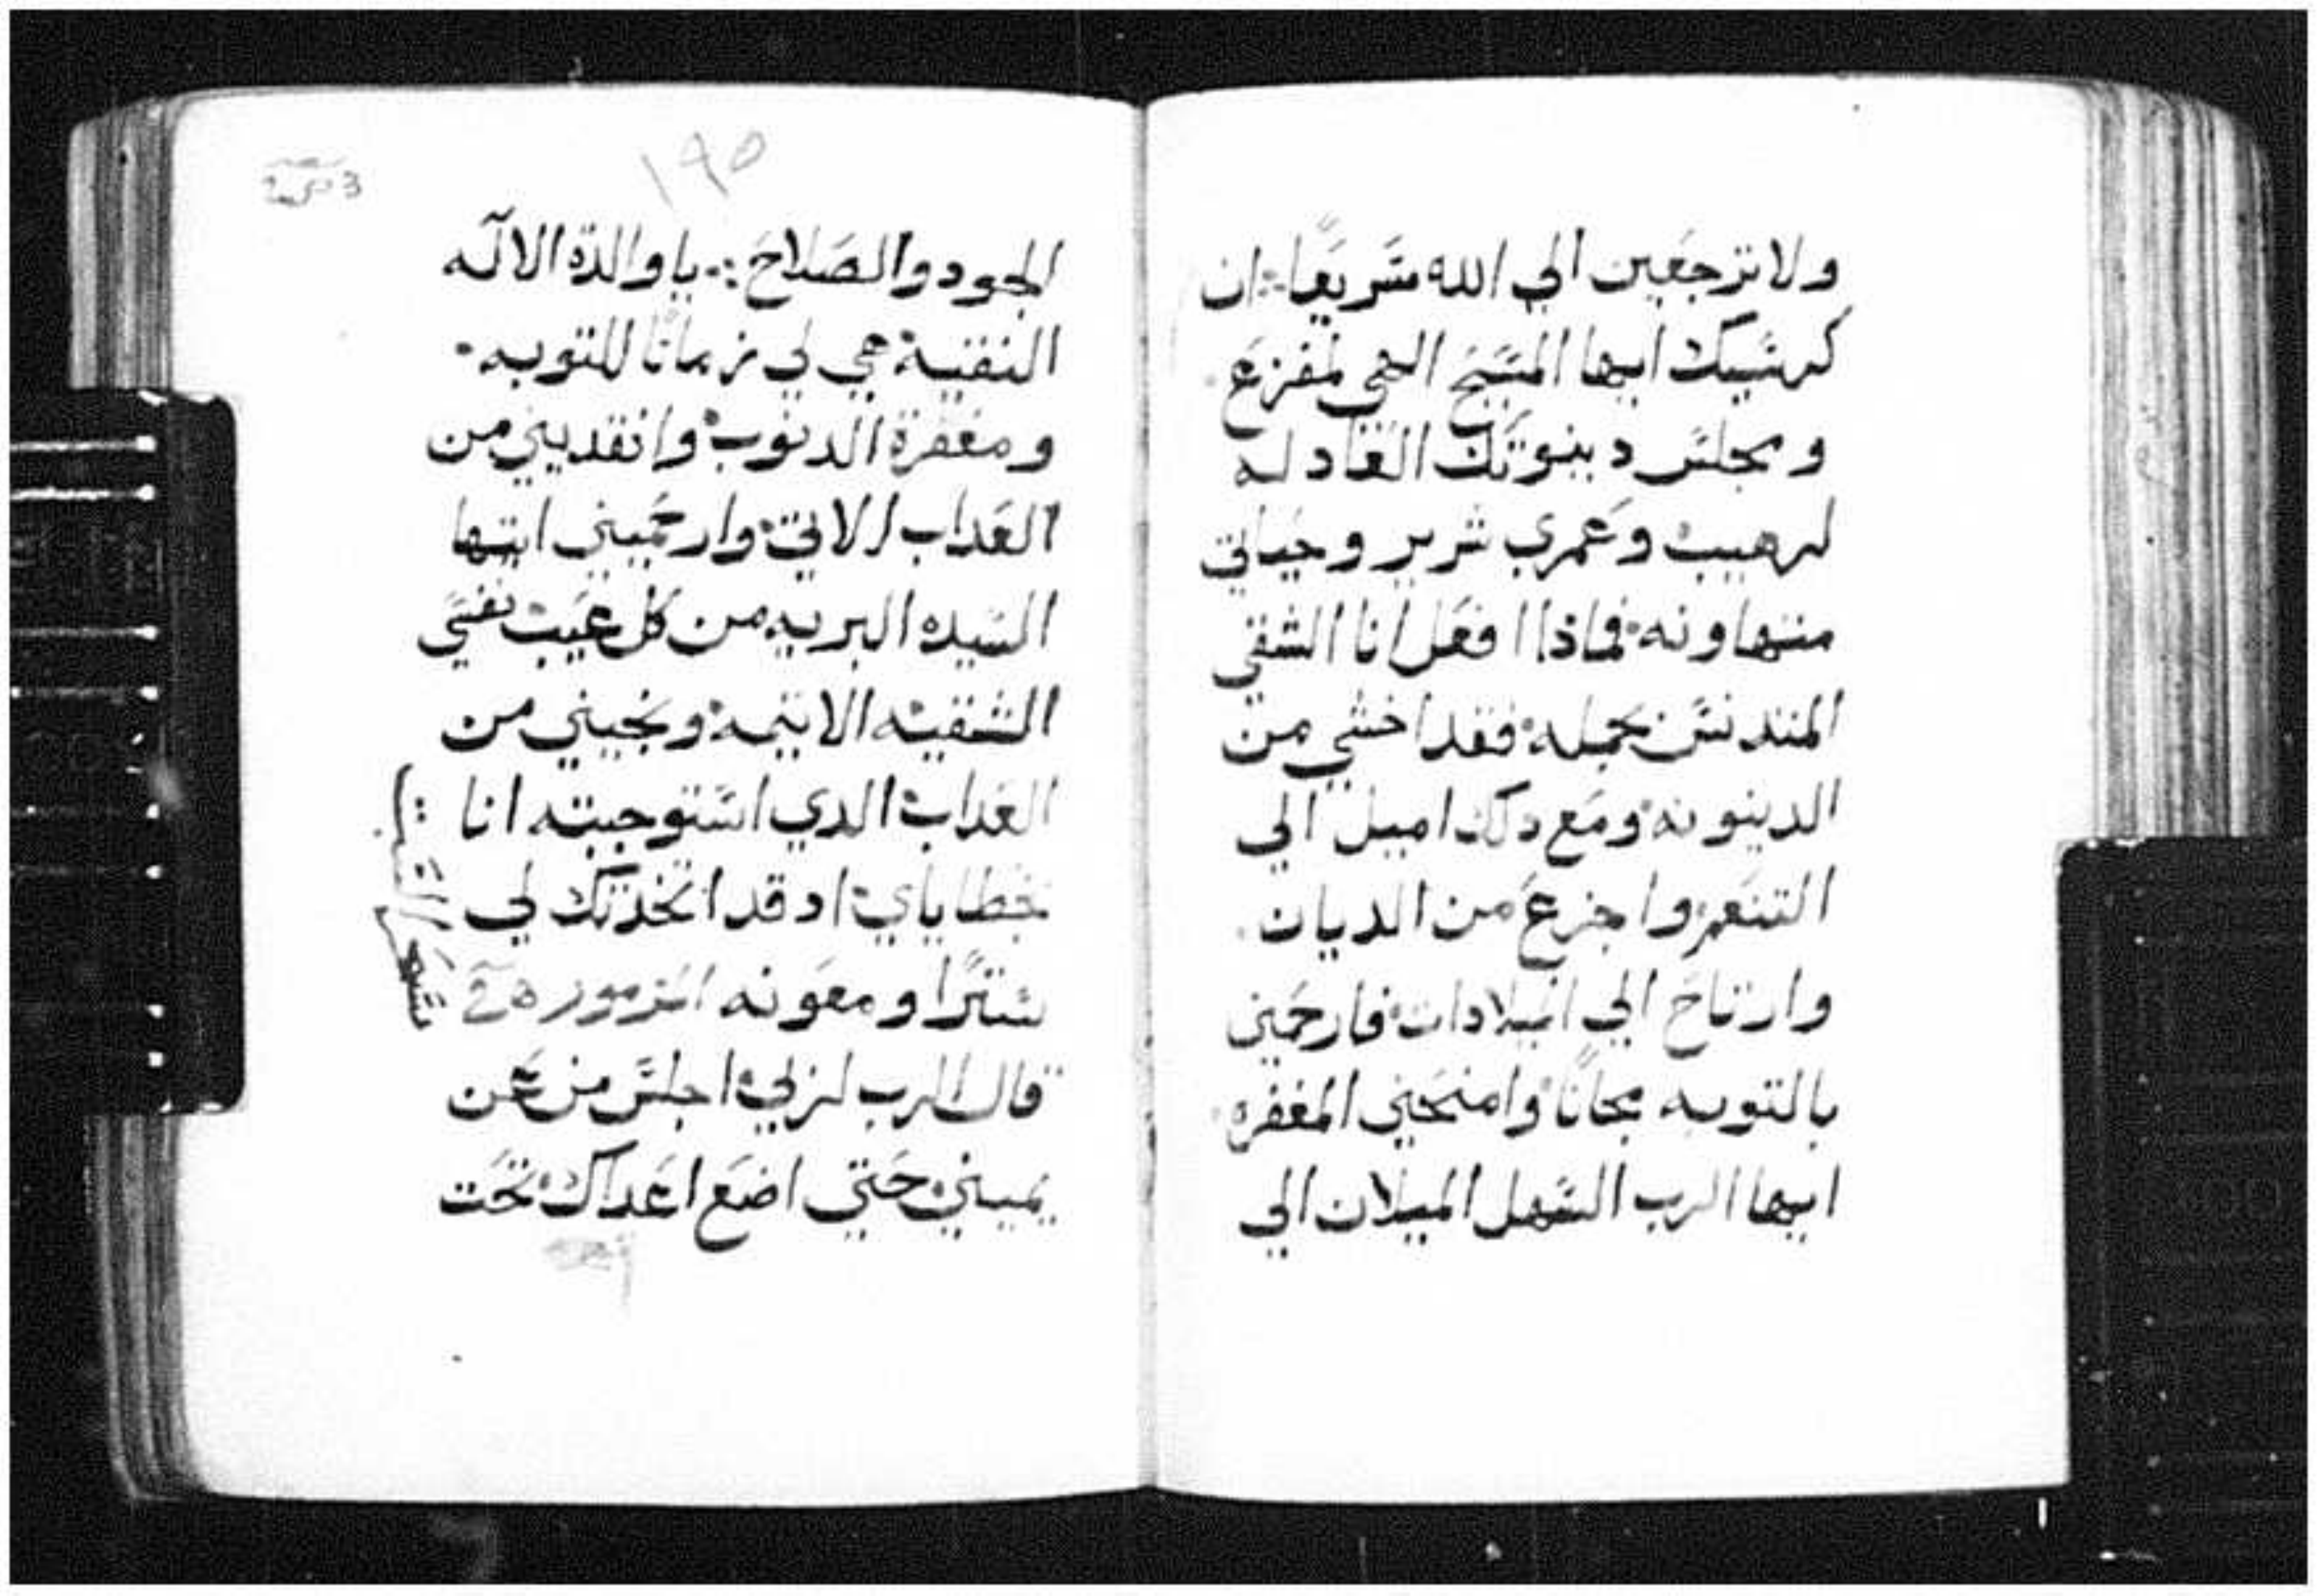 ولا ترجعين الي الله سريعا ان
كرسيك ايها المسيح الهي لمفزع
ومجلس دينونتك العادله
لرهيب وعمري شرير وحياتي
متهاونه فماذا افعل انا الشقي
المتدنس بجمله فقد اخشي من
الدينونة ومع دلك اميل الي
التنعم واجزع من الديان
وارتاح الي الميلادات فارحمني
بالتوبه مجانا وامنحني المغفره
ايها الرب السهل الميلان الي
١٩٥
الجود والصلاح يا والدة الاله
النقية هبي لي زمانًا للتوبه
ومغفرة الدنوب وانقديني من
العداب الاتي وارحميني ايتها
السيده البريه من كل عيب نفسي
الشقيه الاتيمه ونجيني من
العداب الدي استوجبته انا
بخطاياي اد قد اتخدتك لي
سترًا ومعونه المزمور
قال الرب لربي اجلس من عن
يميني حتي اضع اعداك تحت